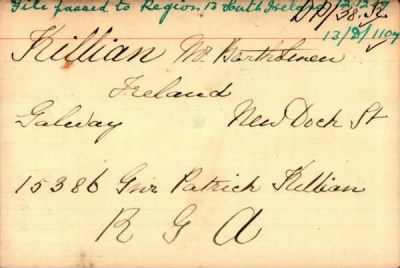 File passed to Region 13 South Ireland
13/D/1104
Killian Mr Bartholmew
Ireland
Galway New Dock St
15386 Gnr Patrick Killian
R G A